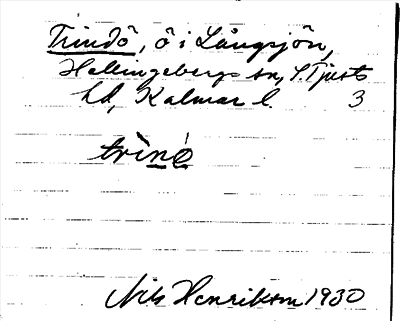 Trindö, ö i Långsjön,
Hallingebergs sn, S. Tjusts
hd, Kalmar l. 3
trìnö́
Nils Henrikson 1930